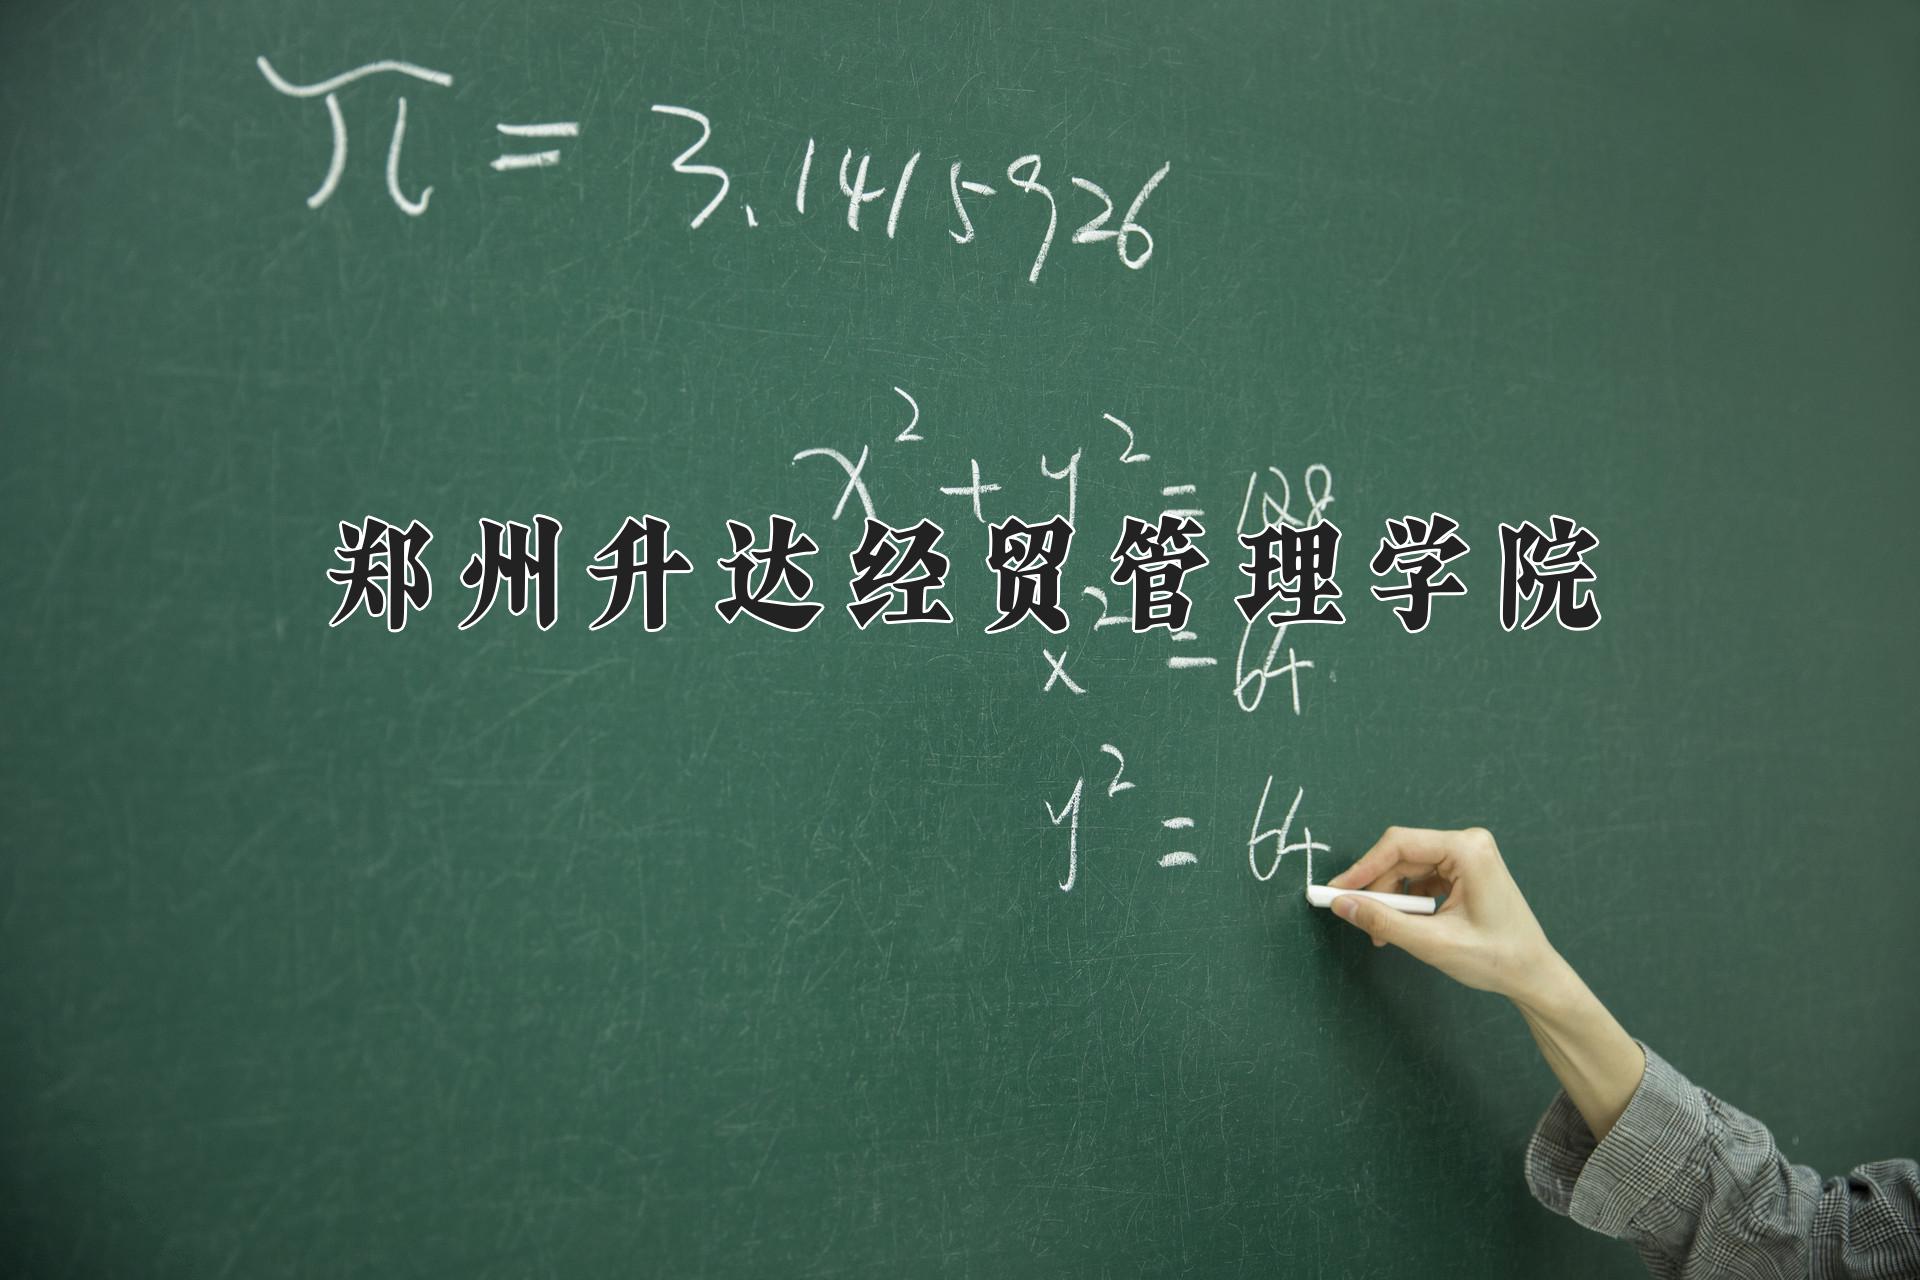 π = 3.1415926
x² + y² = 128
郑州升达经贸管理学院
x² = 64
y² = 64